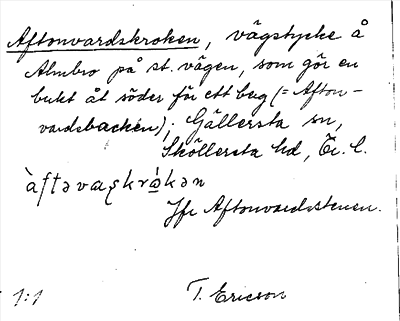 Aftonvardskroken, vägstycke å
Almbro på st. vägen, som gör en
bukt åt söder för ett berg (= Afton-
vardsbacken); Gällersta sn,
Sköllersta hd, Ör. l.
àftəvaʂkrɷ́kən
Jfr Aftonvardsstenen.
1:1 T. Ericson